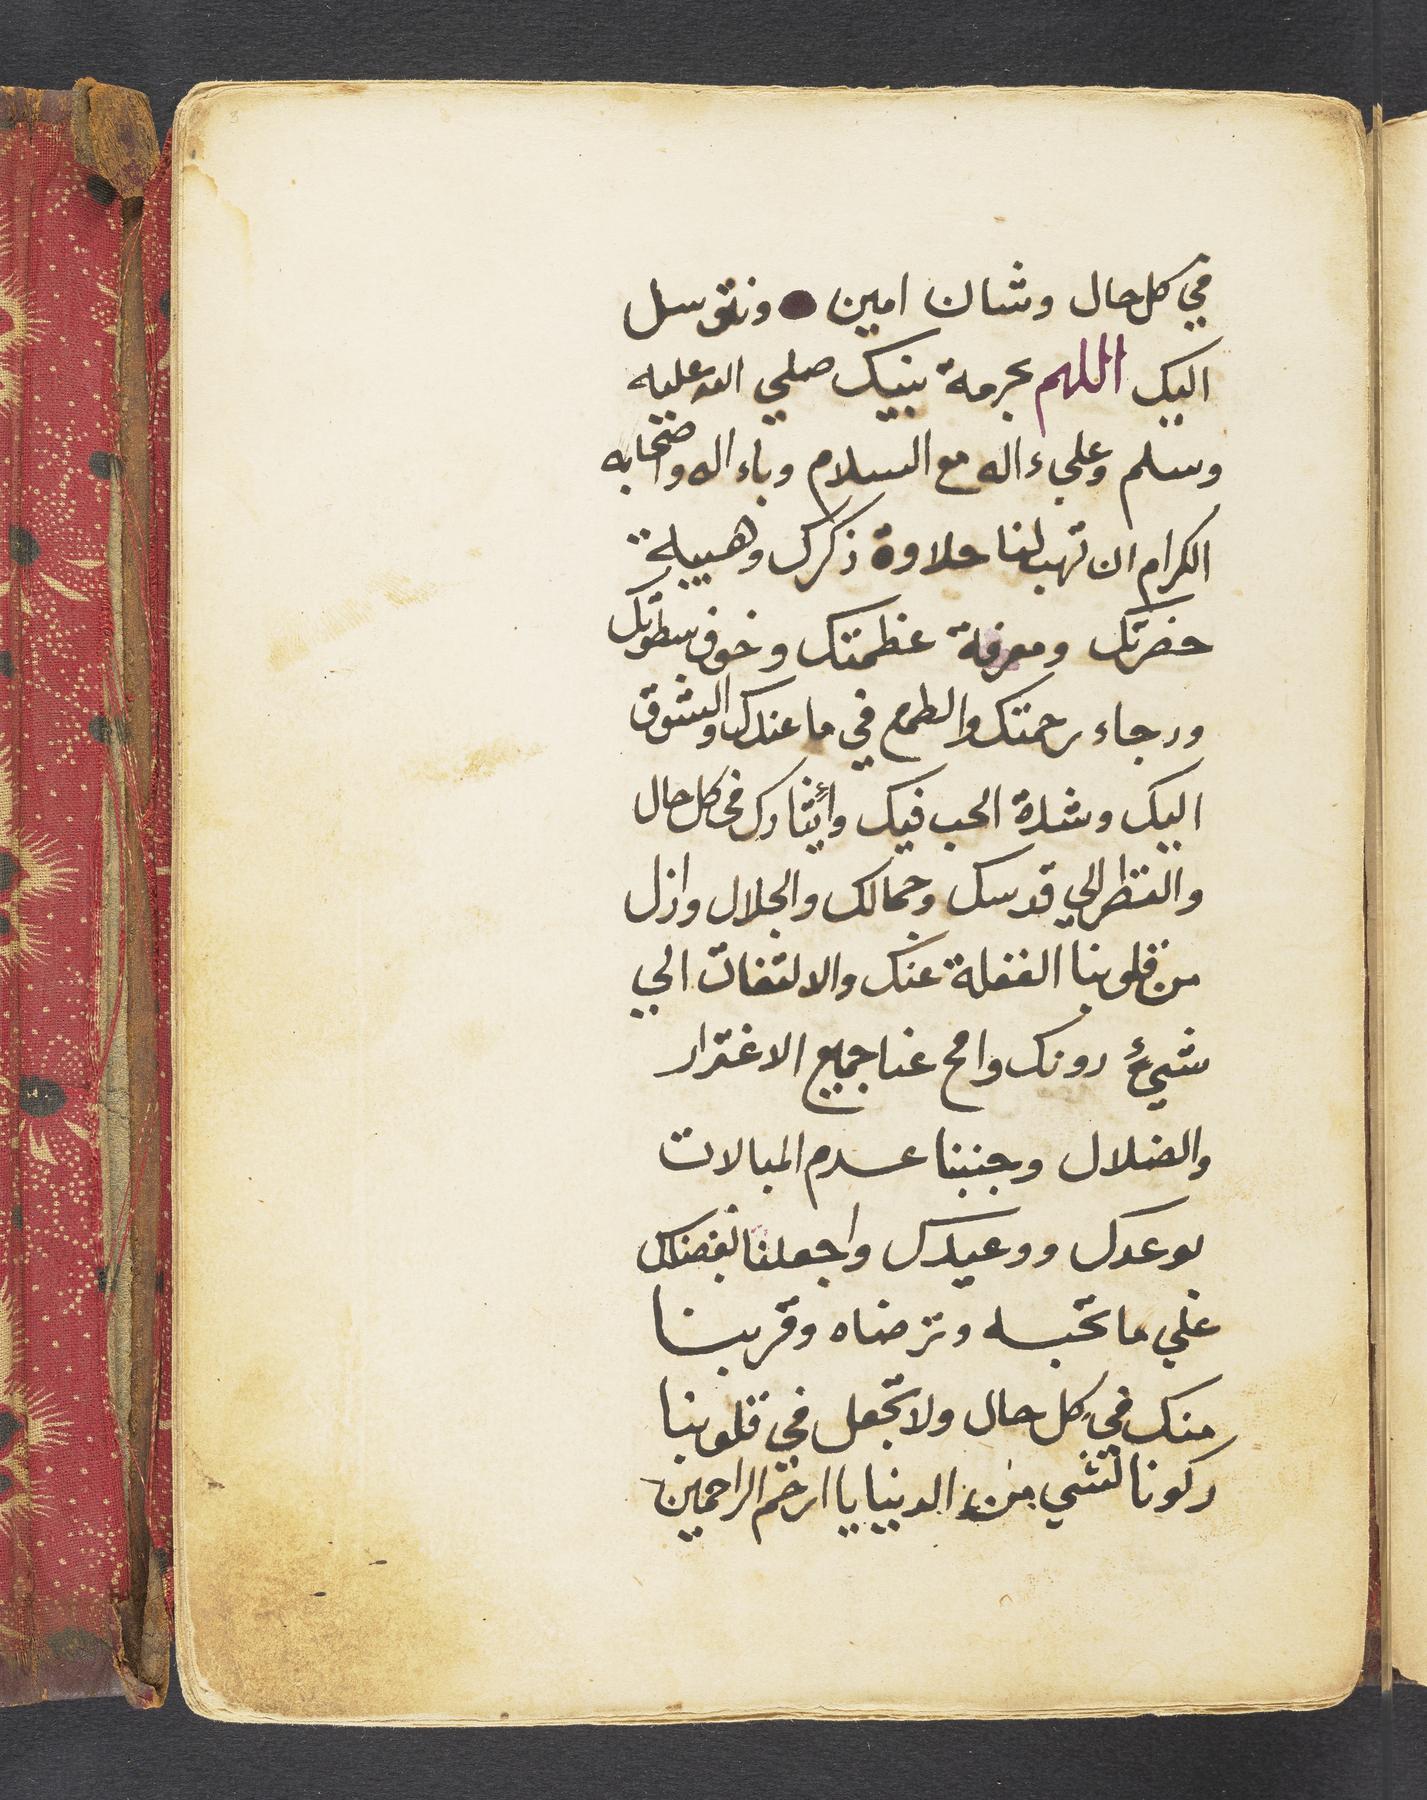 في كل حال وشان امين ● ونتوسل
اليک اللهم بحرمة نبيک صلي الله عليه
وسلم وعليءاله مع السلام وباءاله واصحابه
الكرام ان تهب لنا حلاوة ذكرك وهيبة
حضرتک ومعرفة عظمتک وخوف سطوتک
ورجاء رحمتک والطمع في ما عندک والشوق
اليک وشدة الحب فيک وأيثارک في كل حال
والنظر الي قدسک وجمالک والجلال وازل
من قلوبنا الغفلة عنک والالتفات الي
شيئ دونک وامح عنا جميع الاغترار
والضلال وجنبنا عدم المبالات
بوعدک ووعيدک واجعلنا بفضلک
علي ما تحبه وترضاه وقربنا
منک في كل حال ولا تجعل في قلوبنا
ركونا لشي من الدنيا يا ارحم الراحمين